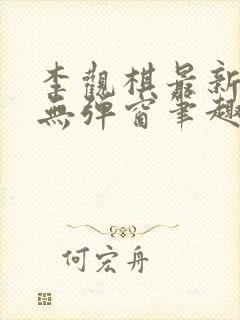 李觀棋最新
無彈窗筆趣
何宏舟